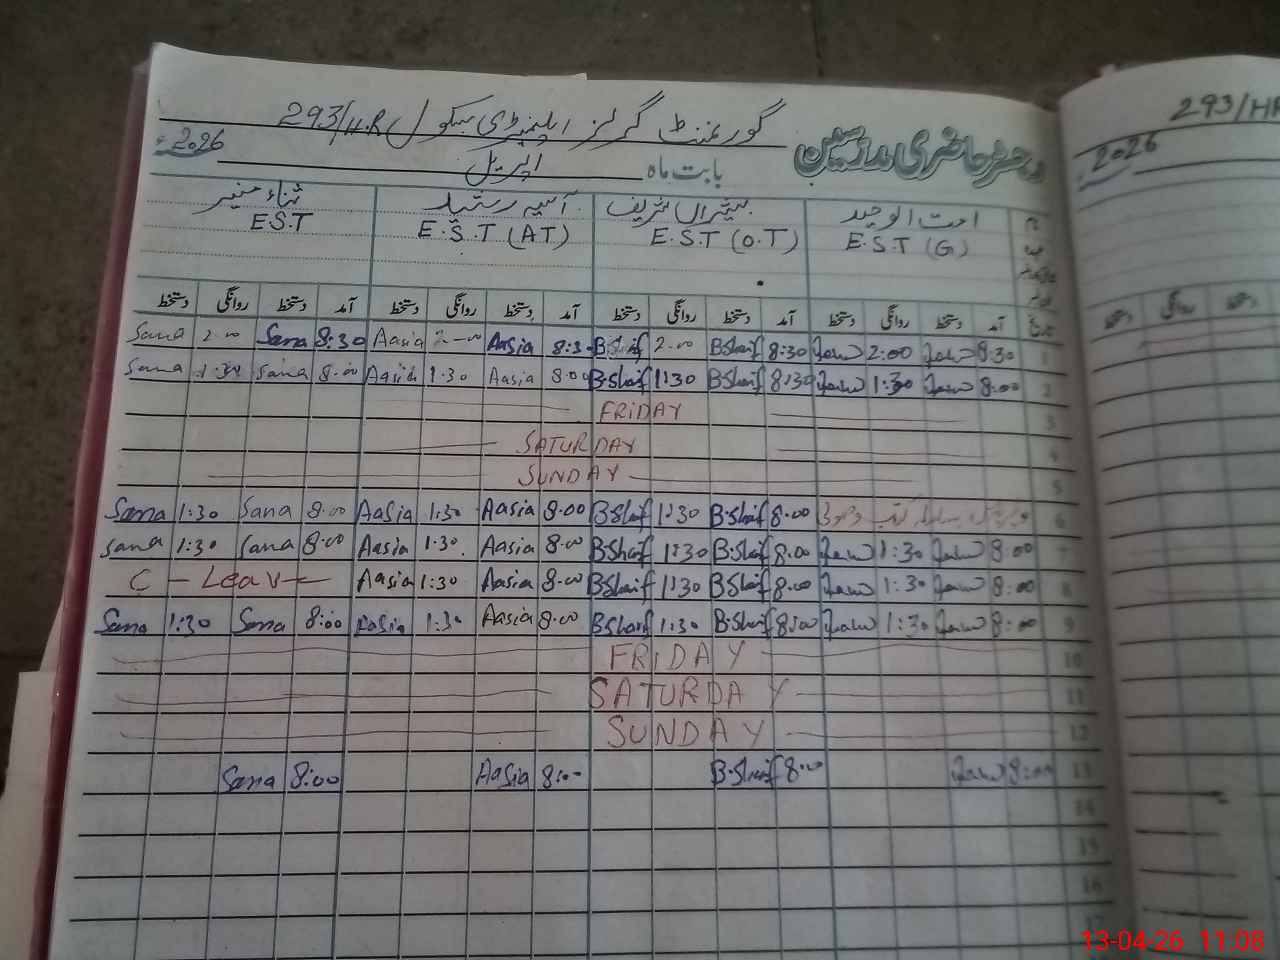 گورنمنٹ گرلز ایلیمنٹری سکول 293/H.R
293/HR
دفتر حاضری مدرسین
بابت ماہ اپریل 2026
2026
امت الوحید بشیراں شریف آسیہ رشید ثناء منیر
E.S.T (G) E.S.T (O.T) E.S.T (AT) E.S.T
تاریخ آمد دستخط روانگی دستخط آمد دستخط روانگی دستخط آمد دستخط روانگی دستخط آمد دستخط روانگی دستخط
دستخط روانگی دستخط
Sana 2.00 Sana 8:30 Aasia 2-00 Aasia 8:30 2.00 8:30 2:00 8:30 1
Sana 1:30 Sana 8.00 Aasia 1:30 Aasia 8.00 1:30 8:30 1:30 8:00 2
FRIDAY 3
SATURDAY 4
SUNDAY 5
Sana 1:30 Sana 8.00 Aasia 1:30 Aasia 8.00 1:30 8.00 6
Sana 1:30 Sana 8.00 Aasia 1:30. Aasia 8.00 1:30 8.00 1:30 8:00 7
C - Leav- Aasia 1:30 Aasia 8.00 1:30 8.00 1:30 8:00 8
Sana 1:30 Sana 8:00 Aasia 1:30 Aasia 8.00 1:30 8:00 1:30 8:00 9
FRIDAY 10
SATURDAY 11
SUNDAY 12
Sana 8:00 Aasia 8:00 8.00 8:00 13
14
15
16
17
13-04-26 11:08